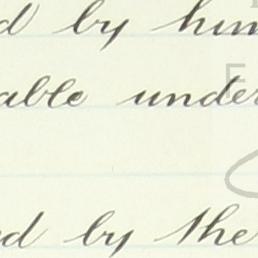 d by him
able under
ed by the